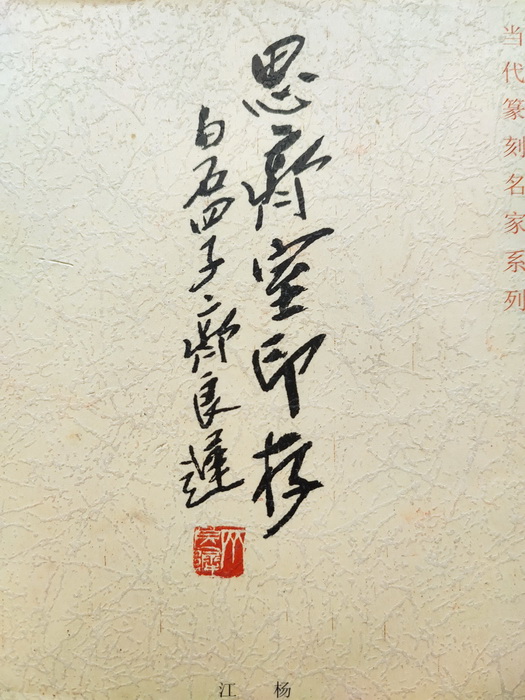 当代篆刻名家系列
思齊室印存
白石四子齊良遲
江 杨